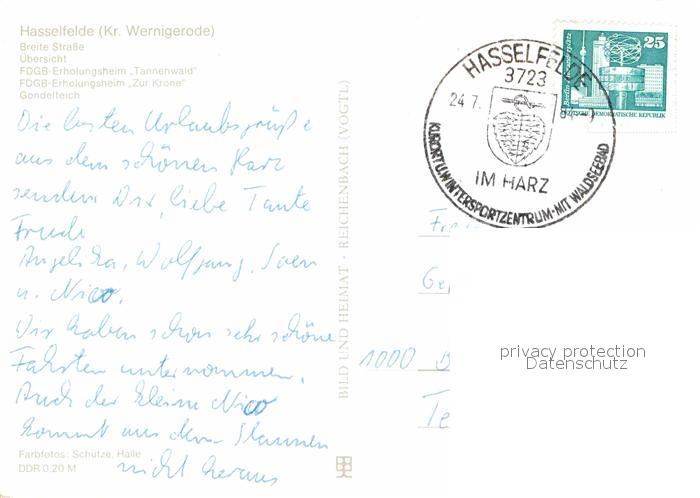 Hasselfelde (Kr. Wernigerode)
Breite Straße
Übersicht
FDGB-Erholungsheim „Tannenwald"
FDGB-Erholungsheim „Zur Krone"
Gondelteich
Die besten Urlaubsgrüße
aus dem schönen Harz
senden Dir, liebe Tante
Friedi
Angelika, Wolfgang, Sven
u. Nico.
Wir haben schon sehr schöne
Fahrten unternommen.
Auch der kleine Nico
kommt aus dem Staunen
nicht heraus
Farbfotos: Schütze, Halle
DDR 0,20 M
BILD UND HEIMAT · REICHENBACH (VOGTL)
HASSELFELDE
3723
24.7.
IM HARZ
KURORT U. WINTERSPORTZENTRUM · MIT WALDSEEBAD
25
DEUTSCHE DEMOKRATISCHE REPUBLIK
Ge
1000 B
Te
privacy protection
Datenschutz